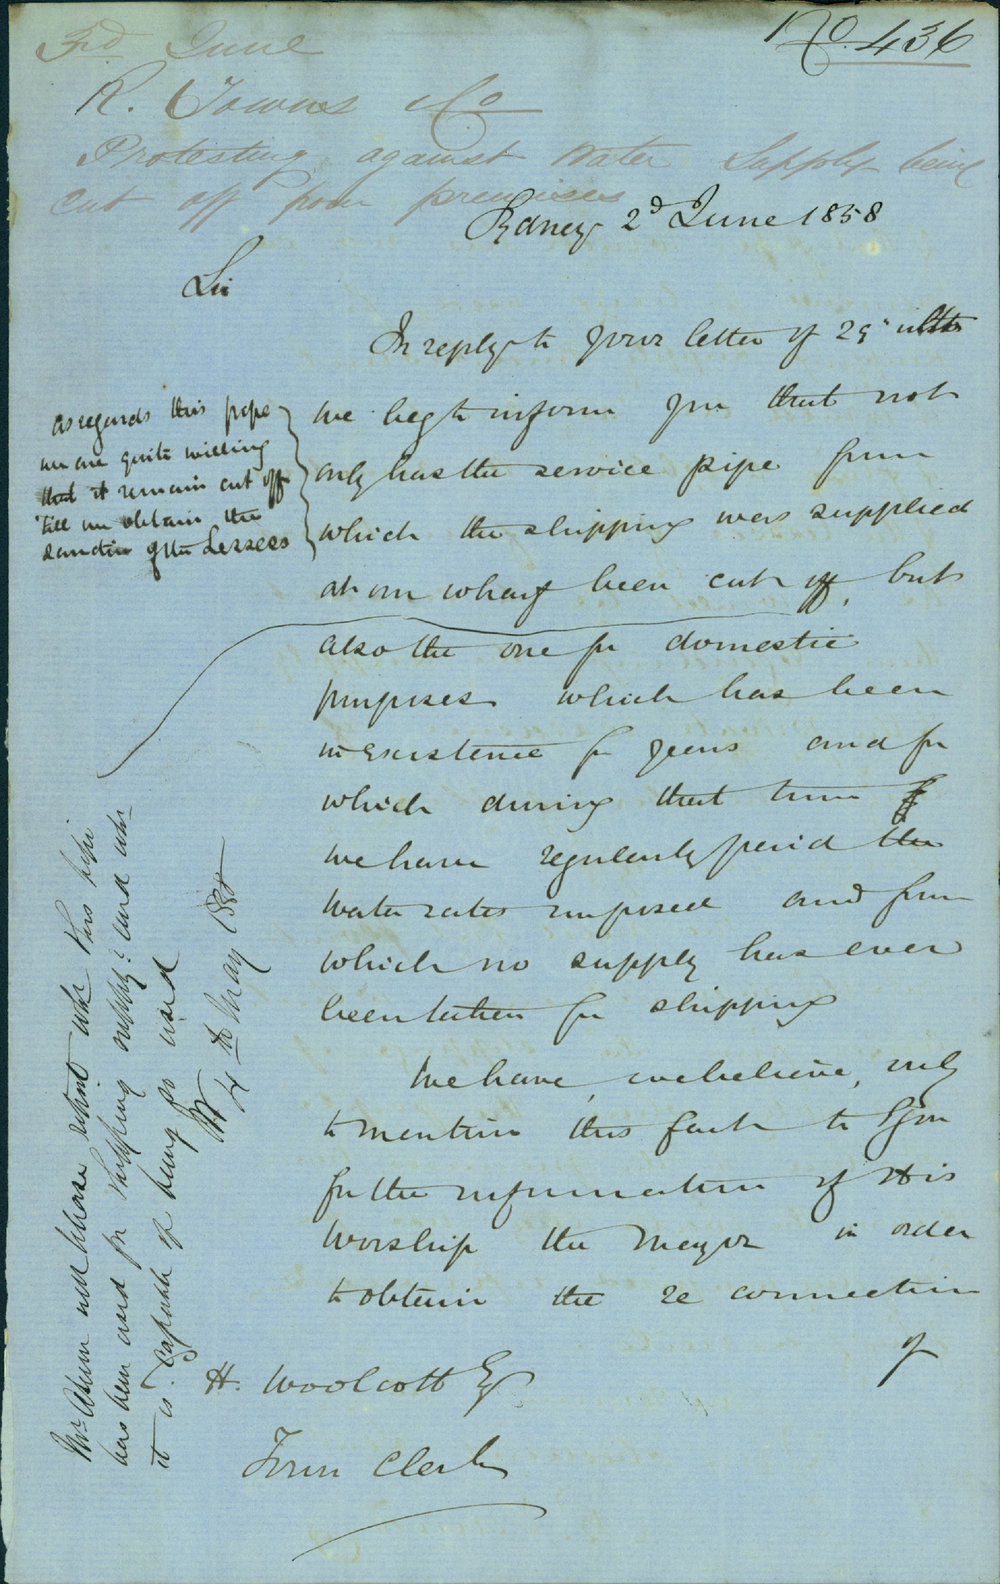 No. 436
3rd June
R. Towns & Co
Protesting against Water Supply being
cut off from premises
Sydney 2d June 1858
Sir
In reply to your letter of 29" ulto
we beg to inform you that not
only has the service pipe from
which the shipping was supplied
at our wharf been cut off, but
as regards this pipe
we are quite willing
that it remain cut off
till we obtain the
sanction of the Lessees
also the one for domestic
purposes which has been
in existence for years and for
which during that time
we have regularly paid the
water rates imposed and from
which no supply has ever
been taken for shipping
We have, we believe, only
to mention this fact to you
for the information of His
Worship the Mayor in order
to obtain the re connection
of
H. Woolcott Esq
Town Clerk
Mr. will please report whr this pipe
has been used for shipping supply & and whr
it is capable of being so used
4th May 1858